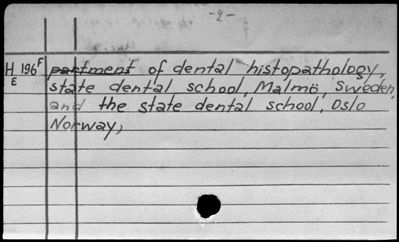 -2-
H 196F partment of dental histopathology,
E state dental school, Malmö, Sweden,
and the state dental school, Oslo
Norway,